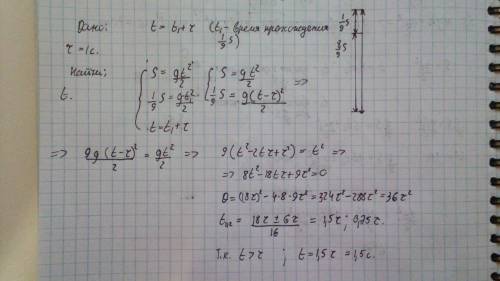 Дано: t = t₁ + τ (t₁ – время прохождения 1/9 S)
τ = 1с.
Найти:
t.
{ S = gt²/2
1/9 S = gt₁²/2
t = t₁ + τ
{ S = gt²/2
1/9 S = g(t-τ)²/2 =>
1/9 S
8/9 S
=> 9g(t-τ)²/2 = gt²/2 => 9(t² - 2tτ + τ²) = t² =>
=> 8t² - 18tτ + 9τ² = 0
D = (18τ)² - 4·8·9τ² = 324τ² - 288τ² = 36τ²
t₁,₂ = (18τ ± 6τ)/16 = 1,5τ ; 0,75τ.
Т.к. t > τ ; t = 1,5τ = 1,5с.